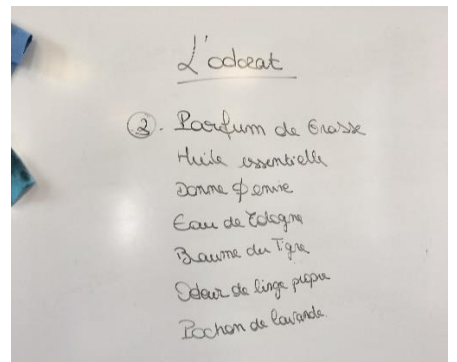 L'odorat
2. Parfum de Grasse
Huile essentielle
Donne envie
Eau de Cologne
Baume du Tigre
Odeur de linge propre
Pochon de lavande